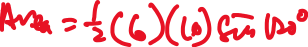 Area = 1/2 (6)(10) Sin 120°